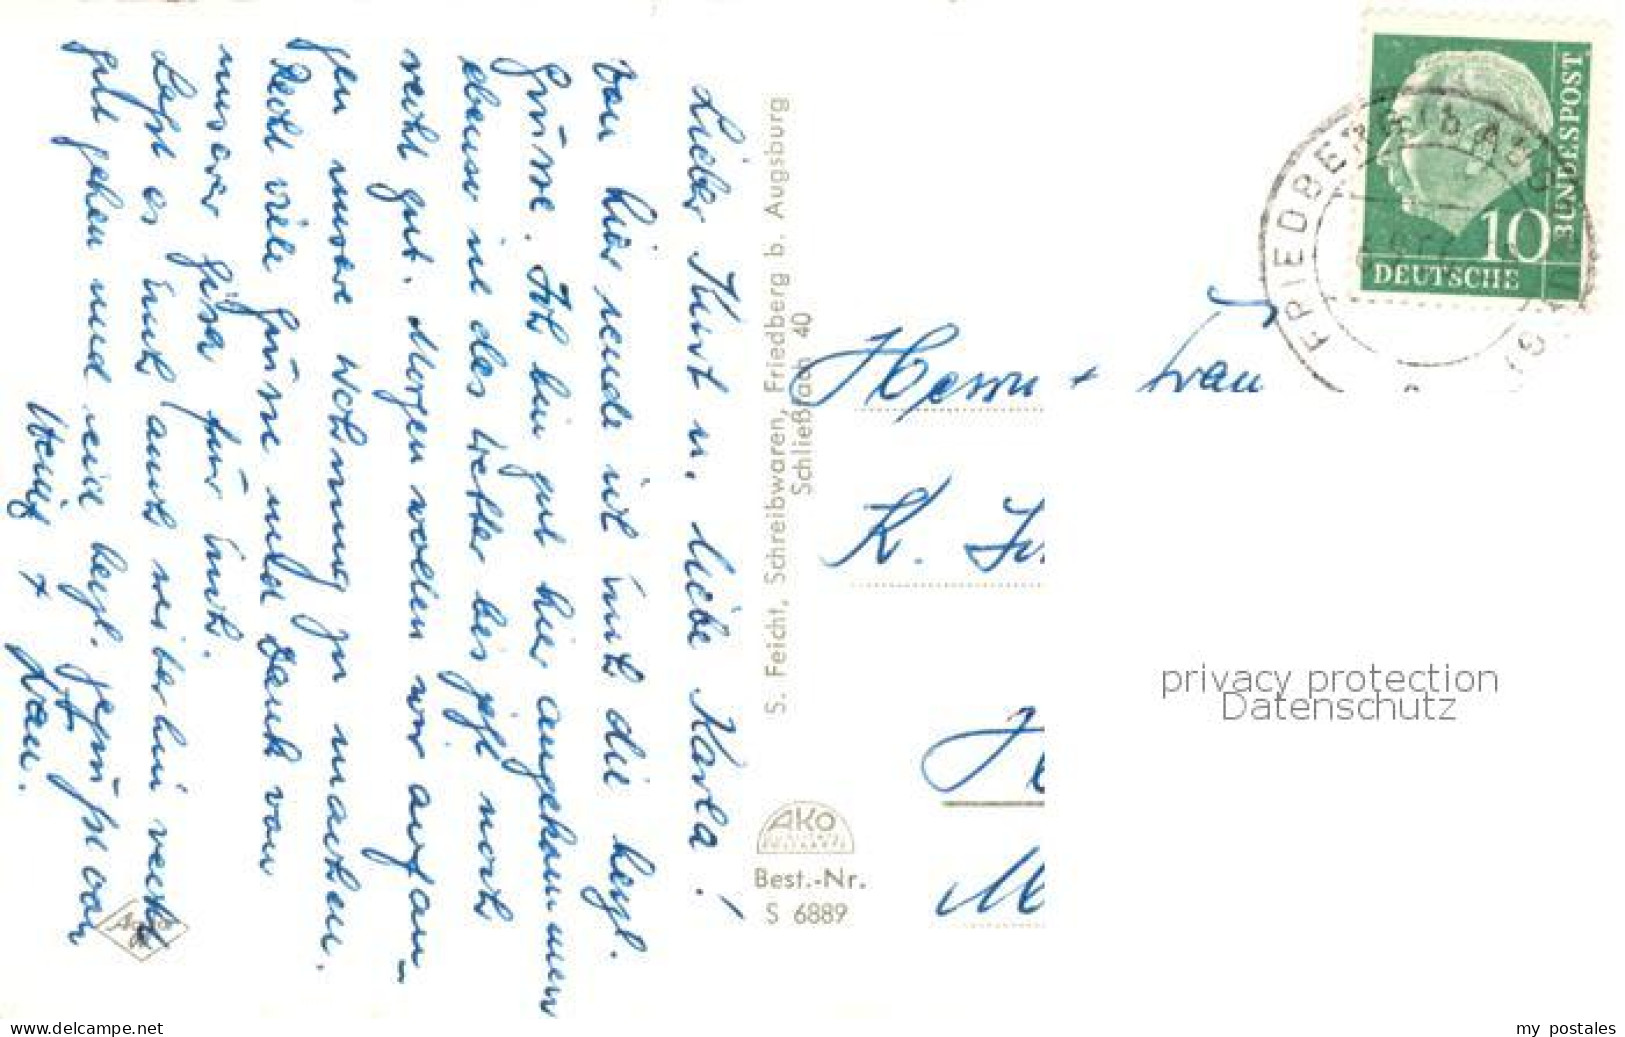 Lieber Kurt u. liebe Karla!
Von hier sende ich Euch die herzl.
Grüsse. Ich bin gut hier angekommen
ebenso ist das Wetter bis jetzt noch
recht gut. Morgen wollen wir anfan-
gen unsere Wohnung zu machen.
Recht viele Grüsse und Dank von
unserer für Euch.
es Euch auch weiterhin recht
gut gehen und seid herzl. gegrüßt von
+ Frau.
S. Feicht, Schreibwaren, Friedberg b. Augsburg
Schließfach 40
AKO
Best.-Nr.
S 6889
Agfa
Herrn + Frau
K.
M
FRIEDBERG
DEUTSCHE
BUNDESPOST
10
privacy protection
Datenschutz
www.delcampe.net
my postales